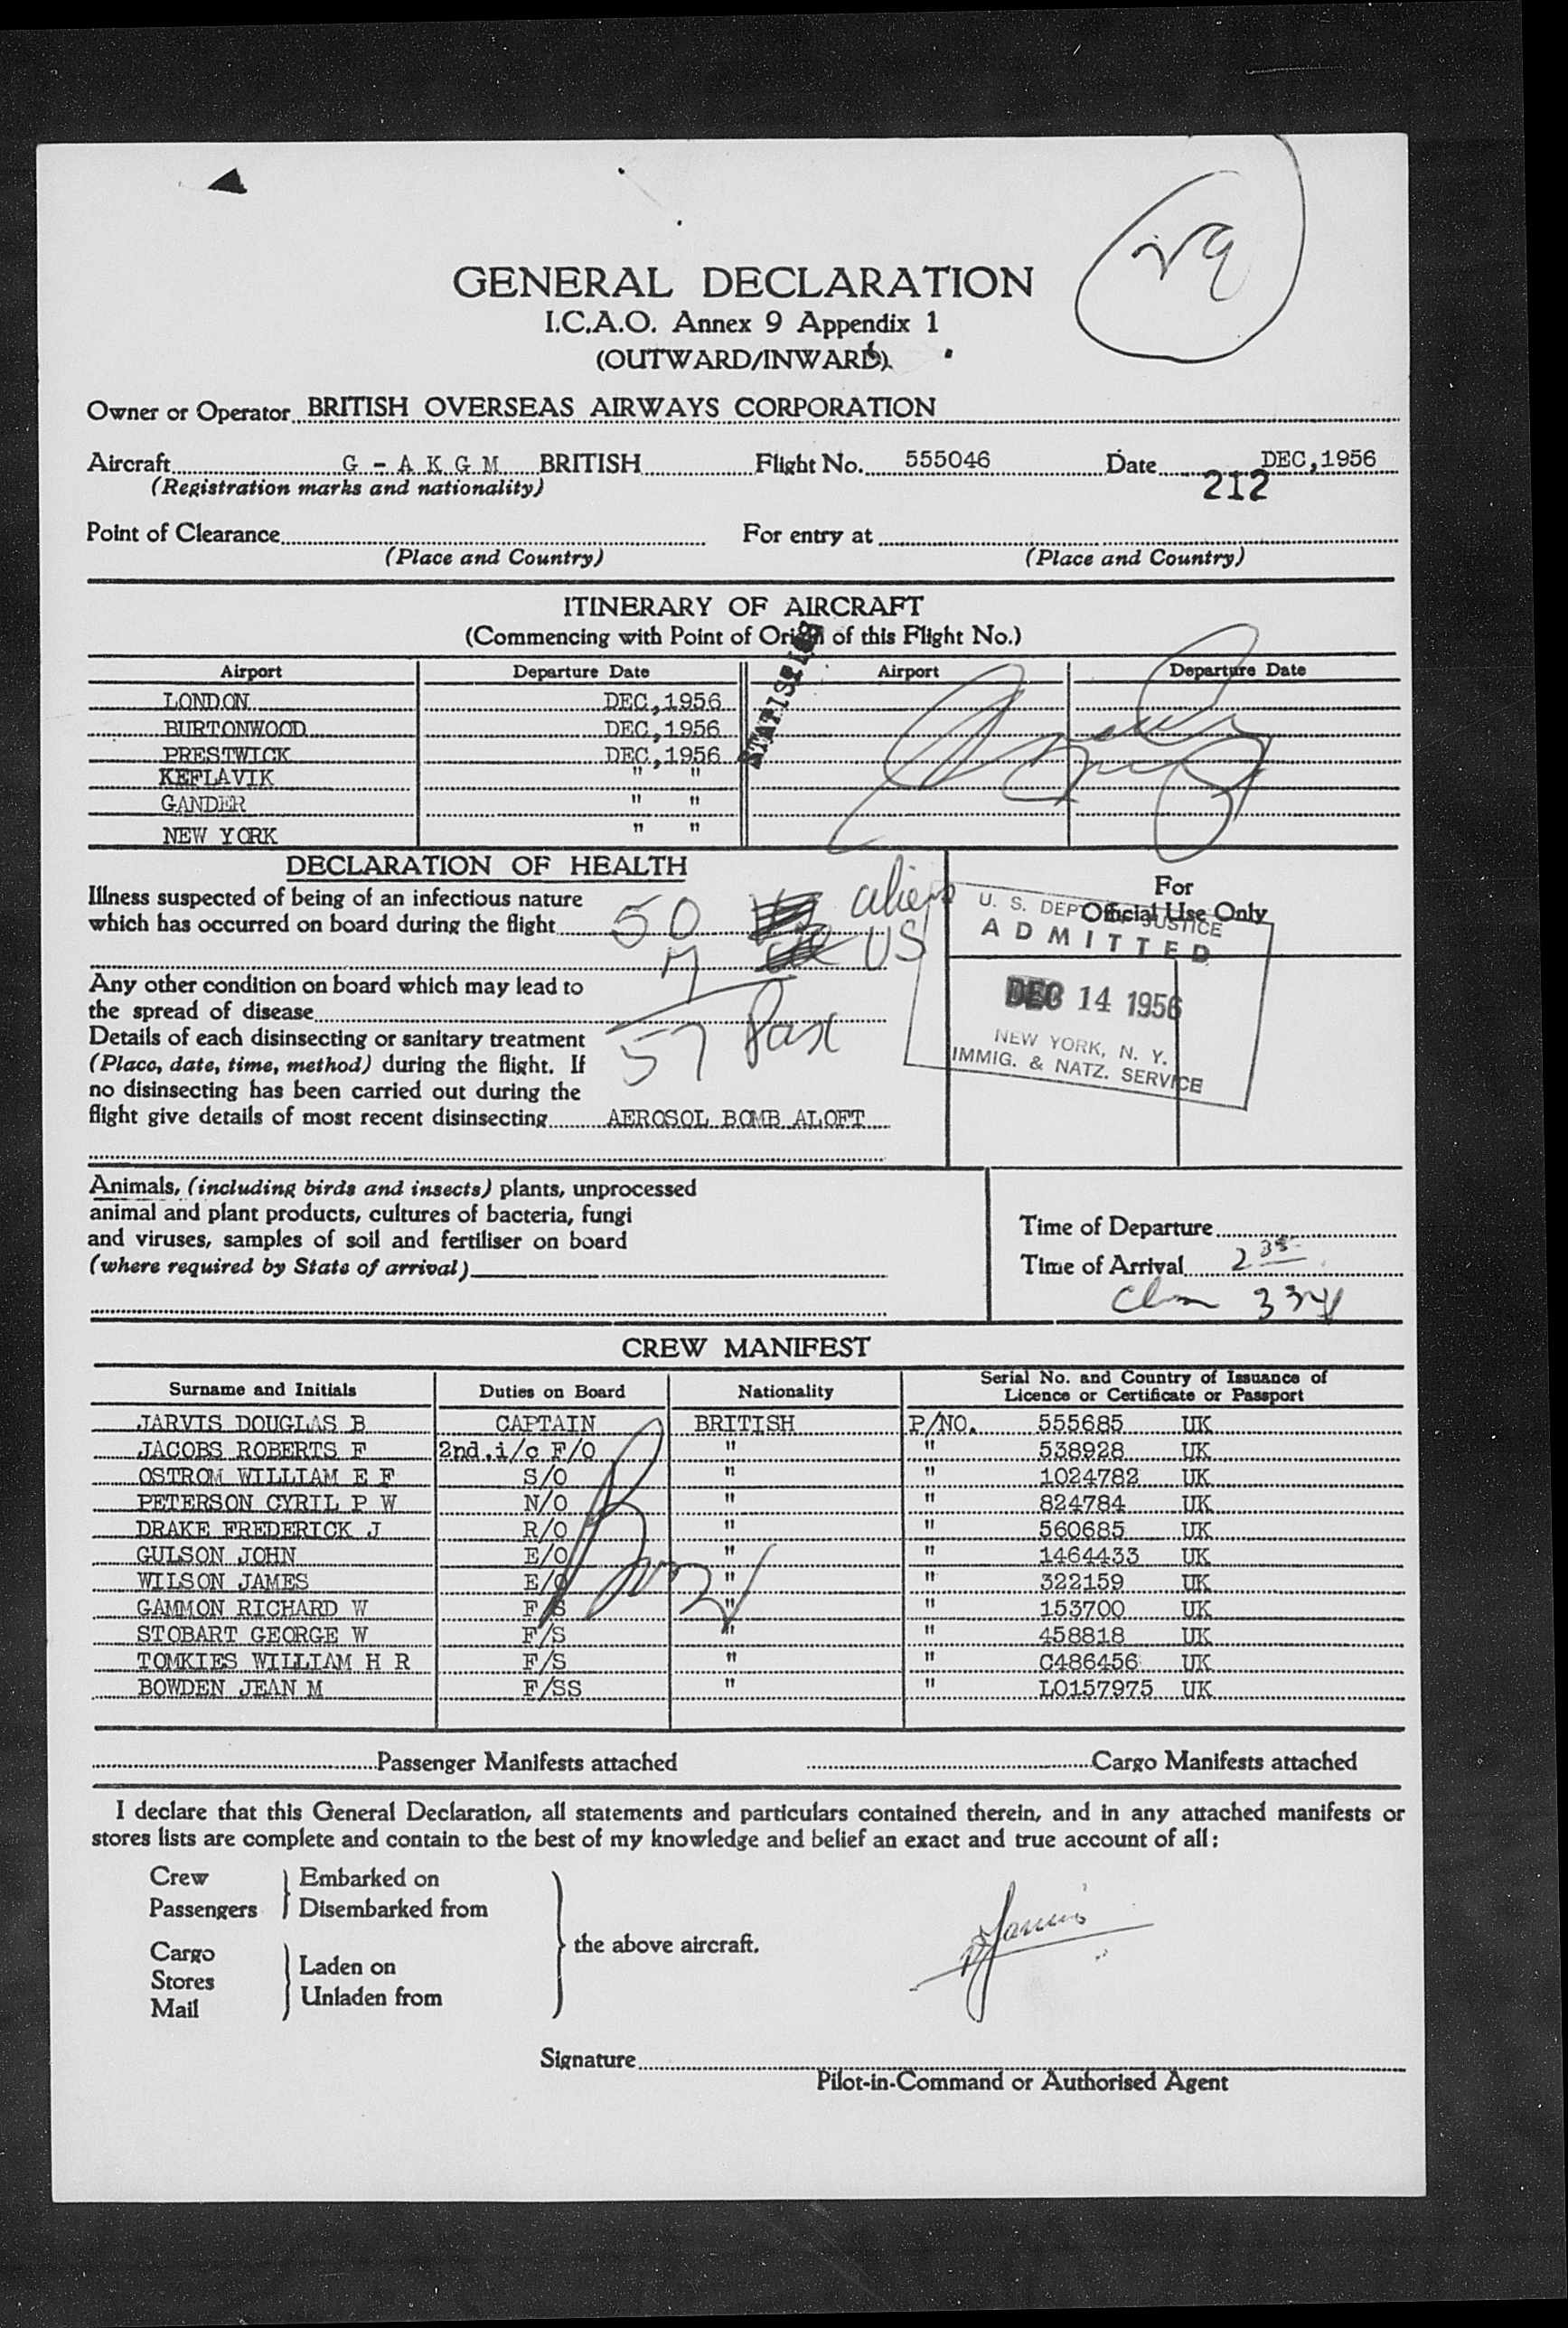 29
GENERAL DECLARATION
I.C.A.O. Annex 9 Appendix 1
(OUTWARD/INWARD)
Owner or Operator BRITISH OVERSEAS AIRWAYS CORPORATION
Aircraft G - A K G M BRITISH Flight No. 555046 Date DEC, 1956
(Registration marks and nationality) 212
Point of Clearance For entry at
(Place and Country) (Place and Country)
ITINERARY OF AIRCRAFT
(Commencing with Point of Origin of this Flight No.)
STATISTICS
Airport Departure Date Airport Departure Date
LONDON DEC, 1956
BURTONWOOD DEC, 1956
PRESTWICK DEC, 1956
KEFLAVIK " "
GANDER " "
NEW YORK " "
DECLARATION OF HEALTH
Illness suspected of being of an infectious nature
which has occurred on board during the flight 50 aliens
7 US
Any other condition on board which may lead to
the spread of disease
57 Pax
Details of each disinsecting or sanitary treatment
(Place, date, time, method) during the flight. If
no disinsecting has been carried out during the
flight give details of most recent disinsecting AEROSOL BOMB ALOFT
For
Official Use Only
U. S. DEPT. OF JUSTICE
ADMITTED
DEC 14 1956
NEW YORK, N. Y.
IMMIG. & NATZ. SERVICE
Animals, (including birds and insects) plants, unprocessed
animal and plant products, cultures of bacteria, fungi
and viruses, samples of soil and fertiliser on board
(where required by State of arrival)
Time of Departure
Time of Arrival 2 35
CREW MANIFEST
Surname and Initials Duties on Board Nationality Serial No. and Country of Issuance of
Licence or Certificate or Passport
JARVIS DOUGLAS B CAPTAIN BRITISH P/NO. 555685 UK
JACOBS ROBERTS F 2nd.i/c F/O " " 538928 UK
OSTROM WILLIAM E F S/O " " 1024782 UK
PETERSON CYRIL P W N/O " " 824784 UK
DRAKE FREDERICK J R/O " " 560685 UK
GULSON JOHN E/O " " 1464433 UK
WILSON JAMES E/O " " 322159 UK
GAMMON RICHARD W F/S " " 153700 UK
STOBART GEORGE W F/S " " 458818 UK
TOMKIES WILLIAM H R F/S " " C486456 UK
BOWDEN JEAN M F/SS " " LO157975 UK
Passenger Manifests attached Cargo Manifests attached
I declare that this General Declaration, all statements and particulars contained therein, and in any attached manifests or
stores lists are complete and contain to the best of my knowledge and belief an exact and true account of all:
Crew Embarked on
Passengers Disembarked from
the above aircraft.
Cargo
Stores Laden on
Mail Unladen from
Signature
Pilot-in-Command or Authorised Agent